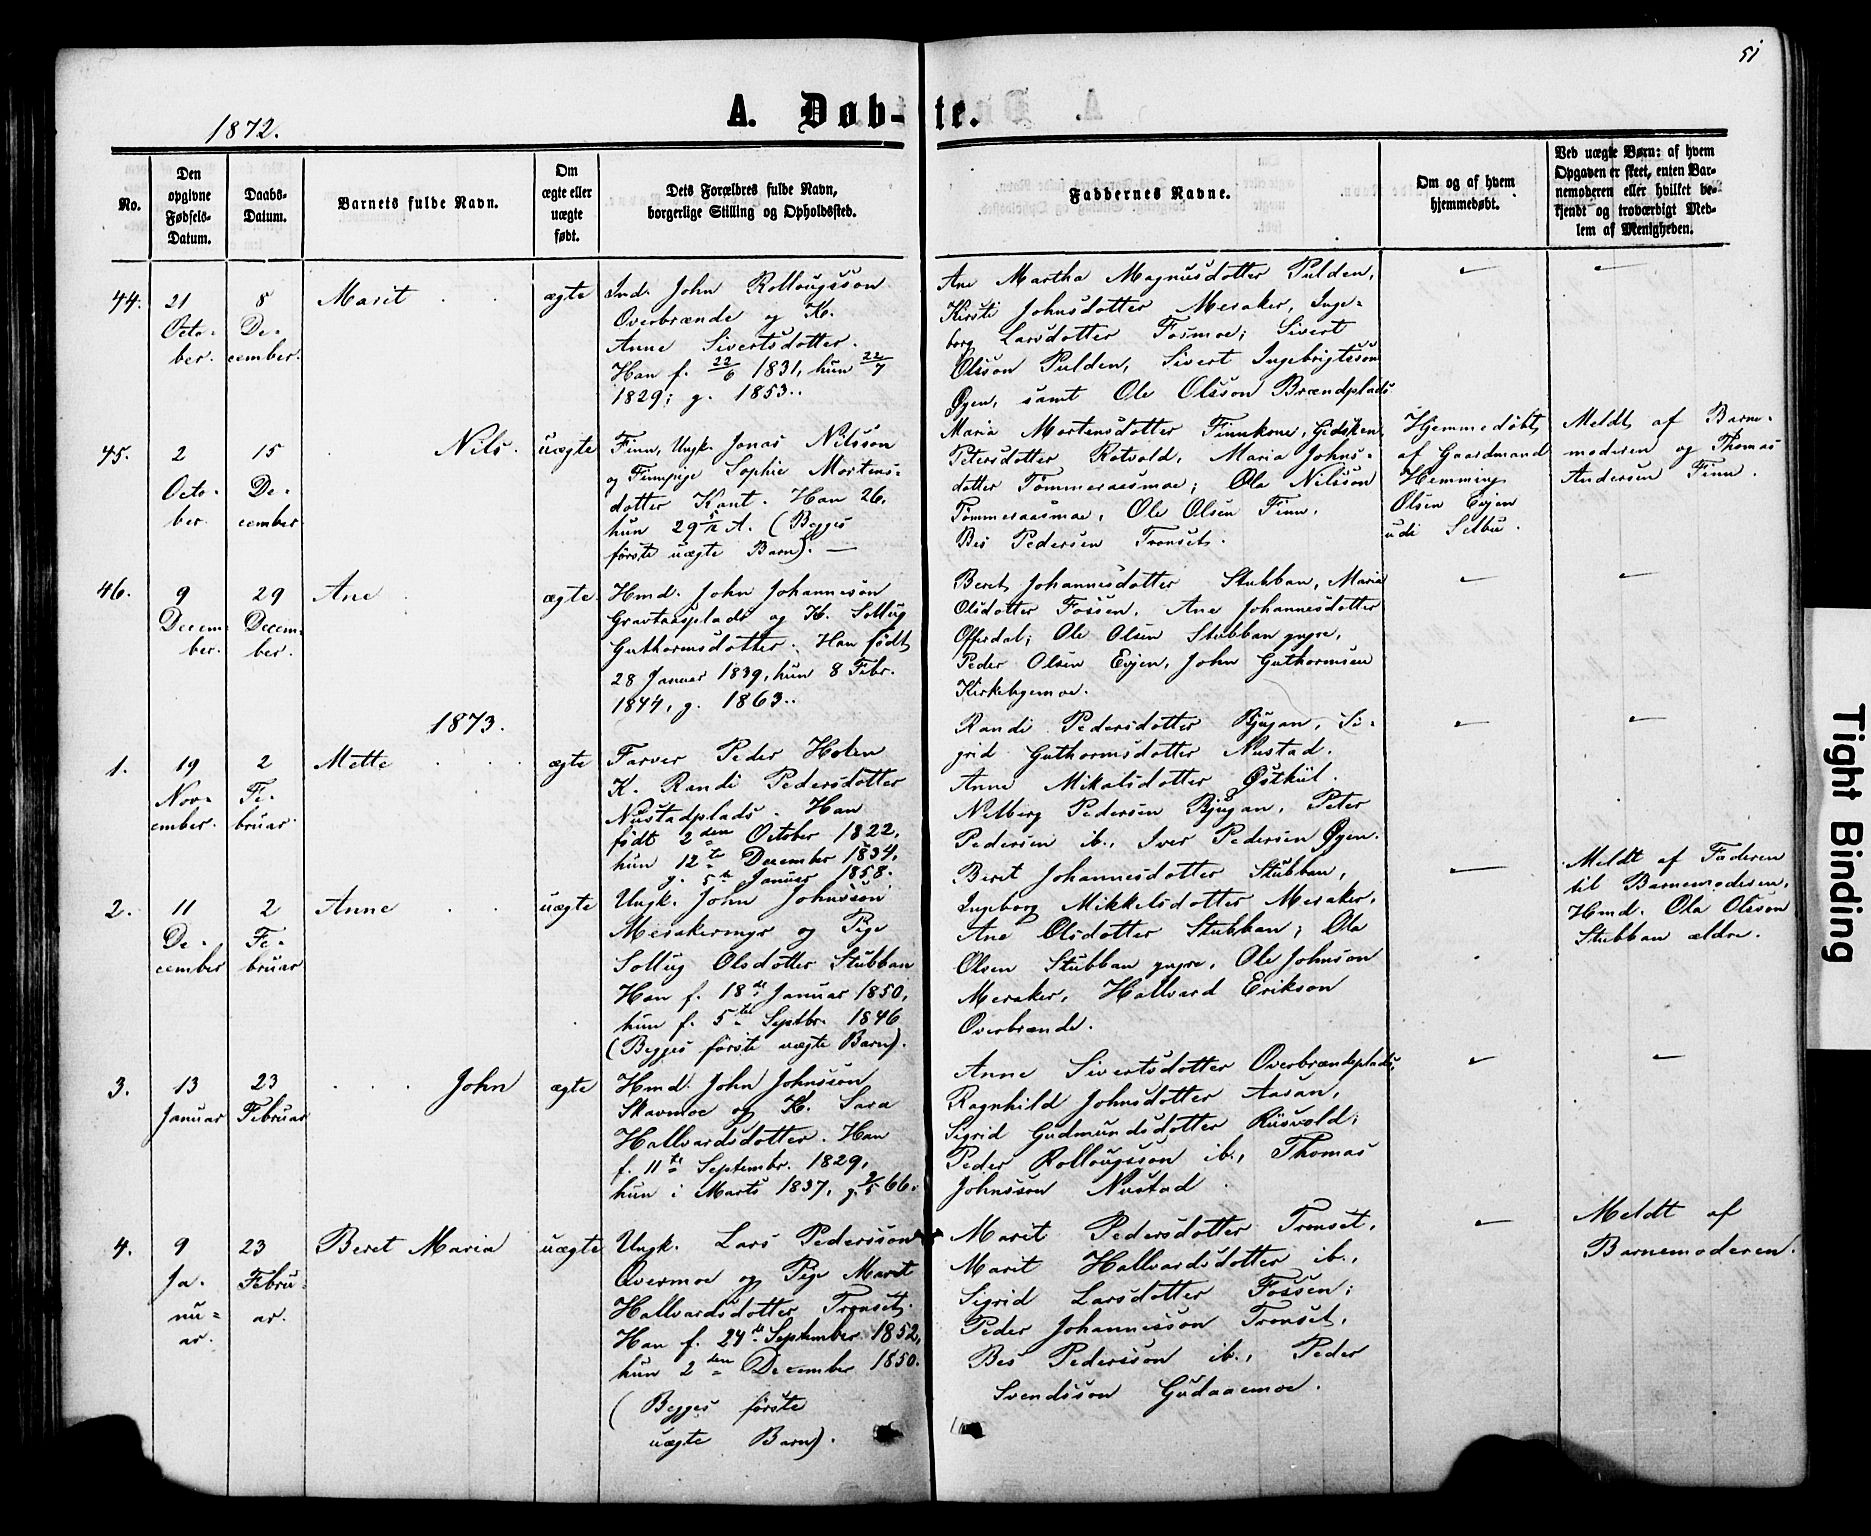 51
1872.
A. Døb-te.
No.
Den opgivne Fødsels-Datum.
Daabs-Datum.
Barnets fulde Navn.
Om ægte eller uægte født.
Dets Forældres fulde Navn, borgerlige Stilling og Opholdssted.
Faddernes Navne.
Om og af hvem hjemmedøbt.
Ved uægte Børn: af hvem Opgaven er skeet, enten Barnemoderen eller hvilket bekjendt og troværdigt Medlem af Menigheden.
44. 21 October. 8 December. Marit ægte
Ind. John Rollougsson
Overbrænde og K.
Anne Sivertsdotter.
Han f. 22/6 1831, hun 22/7
1829; g. 1853..
Ane Martha Magnusdotter Pulden,
Kirsti Johnsdotter Meraker, Inge-
borg Larsdotter Fosmoe; Sivert
Olsson Pulden, Sivert Ingebrigtsson
Øyen, samt Ole Olsson Brændplads
45. 2 October. 15 December. Nils. uægte
Finn, Ungk. Jonas Nilsson
og Finnpige Sophie Mortens-
dotter Kant. Han 26,
hun 29 A. (Begges
første uægte Barn). —
Maria Mortensdotter Finnkone, Gidsken
Petersdotter Rotvold, Maria Johns-
dotter Tømmeraasmoe; Ola Nilsson
Tømmeraasmoe, Ole Olsen Finn,
Bes Pedersen Tronset.
Hjemmedøbt
af Gaardmand
Hemming
Olsen Evjen
udi Selbu.
Meldt af Barne-
moderen og Thomas
Andersen Finn.
46. 9 December. 29 December. Ane ægte
Hmd. John Johannesson
Gravaasplads og K. Sollug
Guthormsdotter. Han født
28 Januar 1839, hun 8 Febr.
1844, g. 1863..
Beret Johannesdotter Stubban, Maria
Olsdotter Fossen, Ane Johannesdotter
Offerdal; Ole Olsen Stubban yngre,
Peder Olsen Evjen, John Guthormsen
Kirkebymoe.
1873.
1. 19 November. 2 Februar. Mette ægte
Farver Peder Holen
K. Randi Pedersdotter
Nustadplads. Han
født 2den October 1822,
hun 12te December 1834,
g. 5te Januar 1858.
Randi Pedersdotter Bjugan, Si-
grid Guthormsdotter Nustad.
Anne Mikalsdotter Østkiil.
Nilberg Pedersen Bjugan, Peter
Pedersen ib., Iver Pedersen Øyen.
2. 11 December 2 Februar Anne uægte
Ungk. John Johnsson
Merakermyr og Pige
Sollug Olsdotter Stubban
Han f. 18de Januar 1850,
hun f. 5te Septbr. 1846
(Begges første uægte Barn).
Beret Johannesdotter Stubban,
Ingeborg Mikkelsdotter Meraker,
Ane Olsdotter Stubban; Ola
Olsen Stubban yngre, Ole Johnson
Meraker, Hallvard Erikson
Overbrænde.
Meldt af Faderen
til Barnemoderen,
Hmd. Ola Olsson
Stubban ældre.
3. 13 Januar 23 Februar John ægte
Hmd. John Johnsson
Skavmoe og K. Sara
Hallvardsdotter. Han
f. 11te Septembr. 1829,
hun i Marts 1837, g. 2/5 66.
Anne Sivertsdotter Overbrændsplads,
Ragnhild Johnsdotter Aasan,
Sigrid Gudmundsdotter Riisvold;
Peder Rollougsson ib., Thomas
Johnsson Nustad.
4. 9 Januar. 23 Februar. Beret Maria uægte
Ungk. Lars Pedersson
Overmoe og Pige Marit
Hallvardsdotter Tronset.
Han f. 24de September 1852,
hun 2den December 1850.
(Begges første
uægte Barn).
Marit Pedersdotter Tronset,
Marit Hallvardsdotter ib.,
Sigrid Larsdotter Fossen;
Peder Johannesson Tronset,
Bes Pedersson ib., Peder
Svendsson Gudaaemoe.
Meldt af
Barnemoderen.
Tight Binding